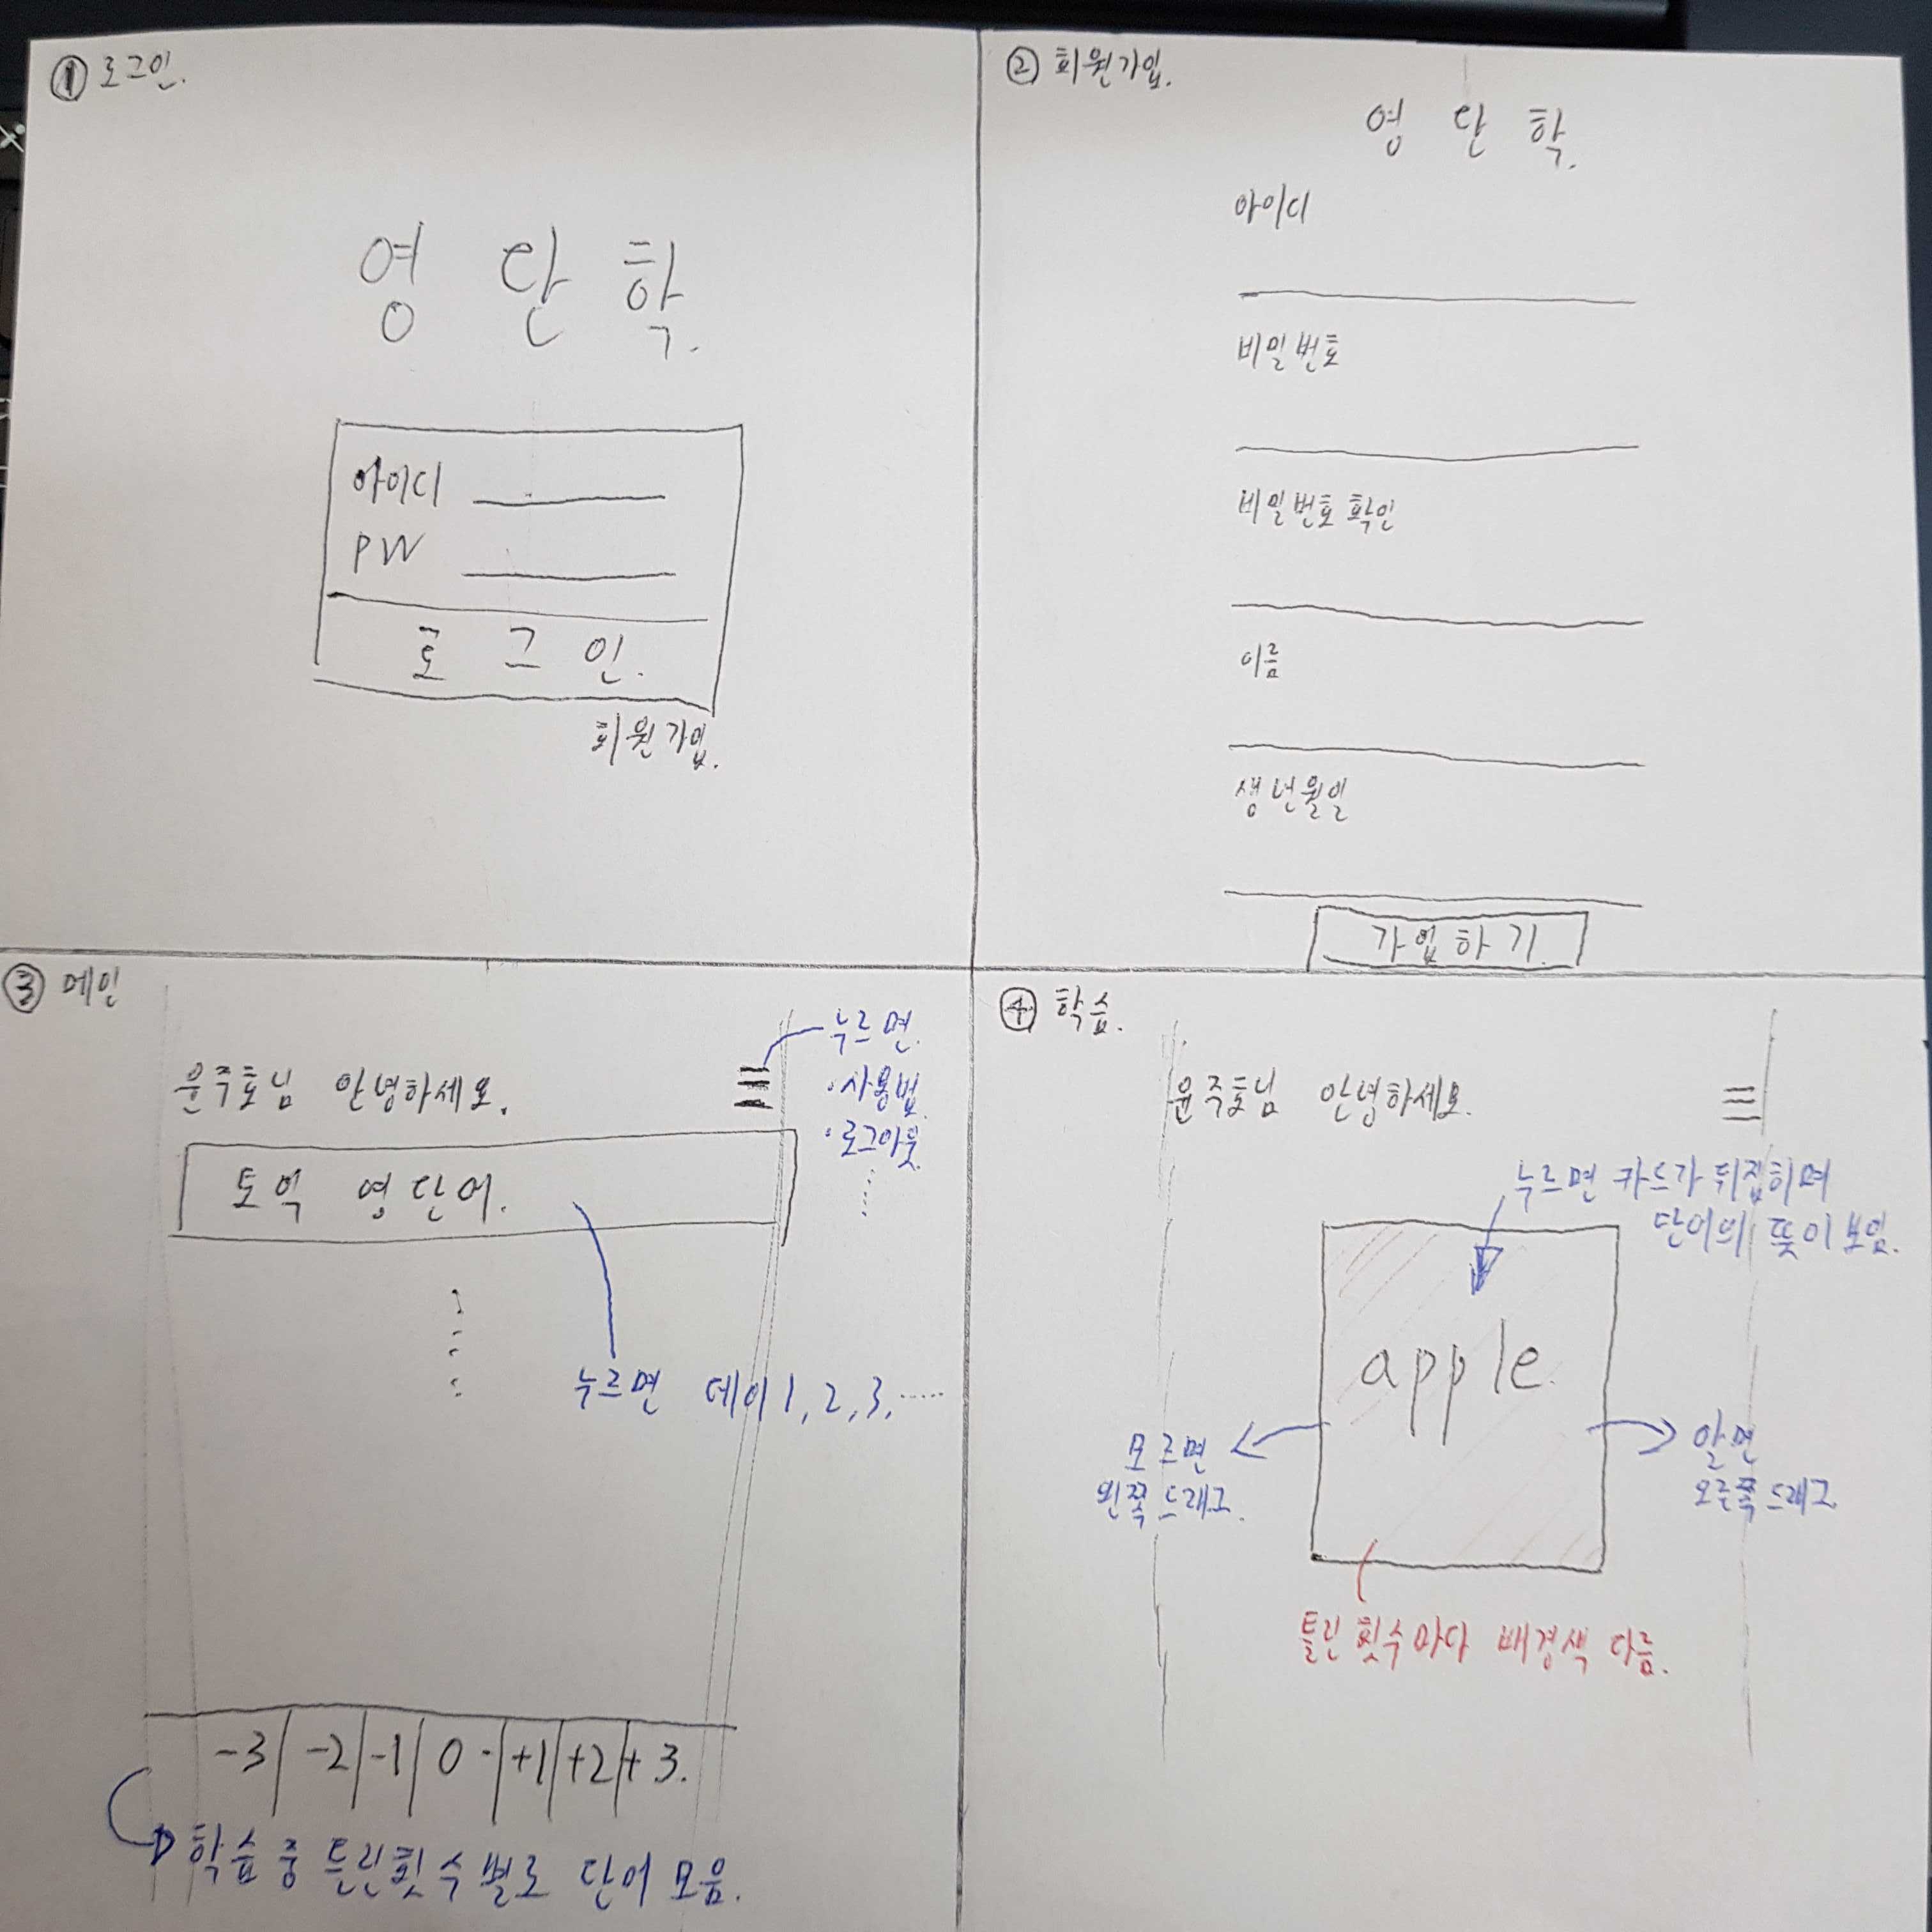 ① 로그인.
영 단 학.
아이디
PW
로 그 인.
회원가입.
② 회원가입.
영 단 학.
아이디
비밀번호
비밀번호 확인
이름
생년월일
가입하기.
③ 메인
윤주호님 안녕하세요.
누르면
· 사용법
· 로그아웃
토익 영단어.
누르면 데이 1, 2, 3, ......
-3 -2 -1 0 +1 +2 +3.
학습 중 틀린 횟수별로 단어 모음.
④ 학습.
윤주호님 안녕하세요.
누르면 카드가 뒤집히며
단어의 뜻이 보임.
apple.
모르면
왼쪽 드래그.
알면
오른쪽 드래그.
틀린 횟수마다 배경색 다름.